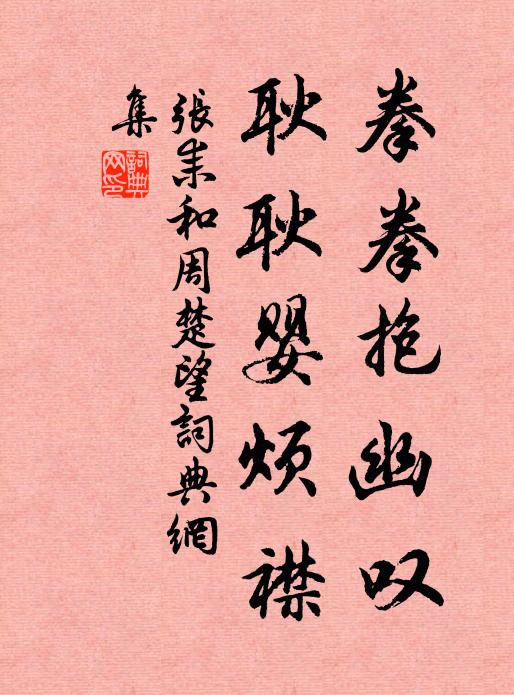 拳拳抱幽叹
耿耿婴烦襟
張耒和周楚望詞典網
集
詞典
网印